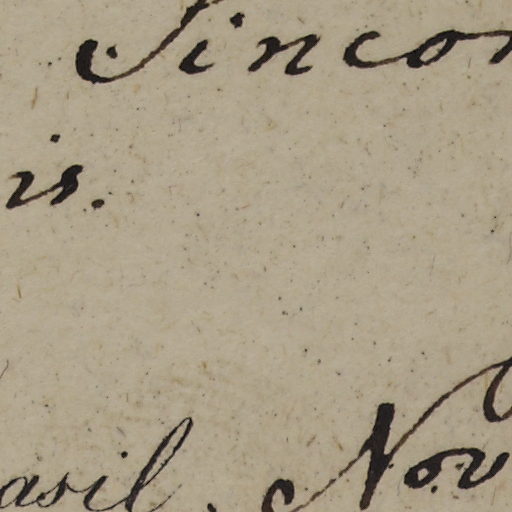 Sincor
is.
asil. Nov